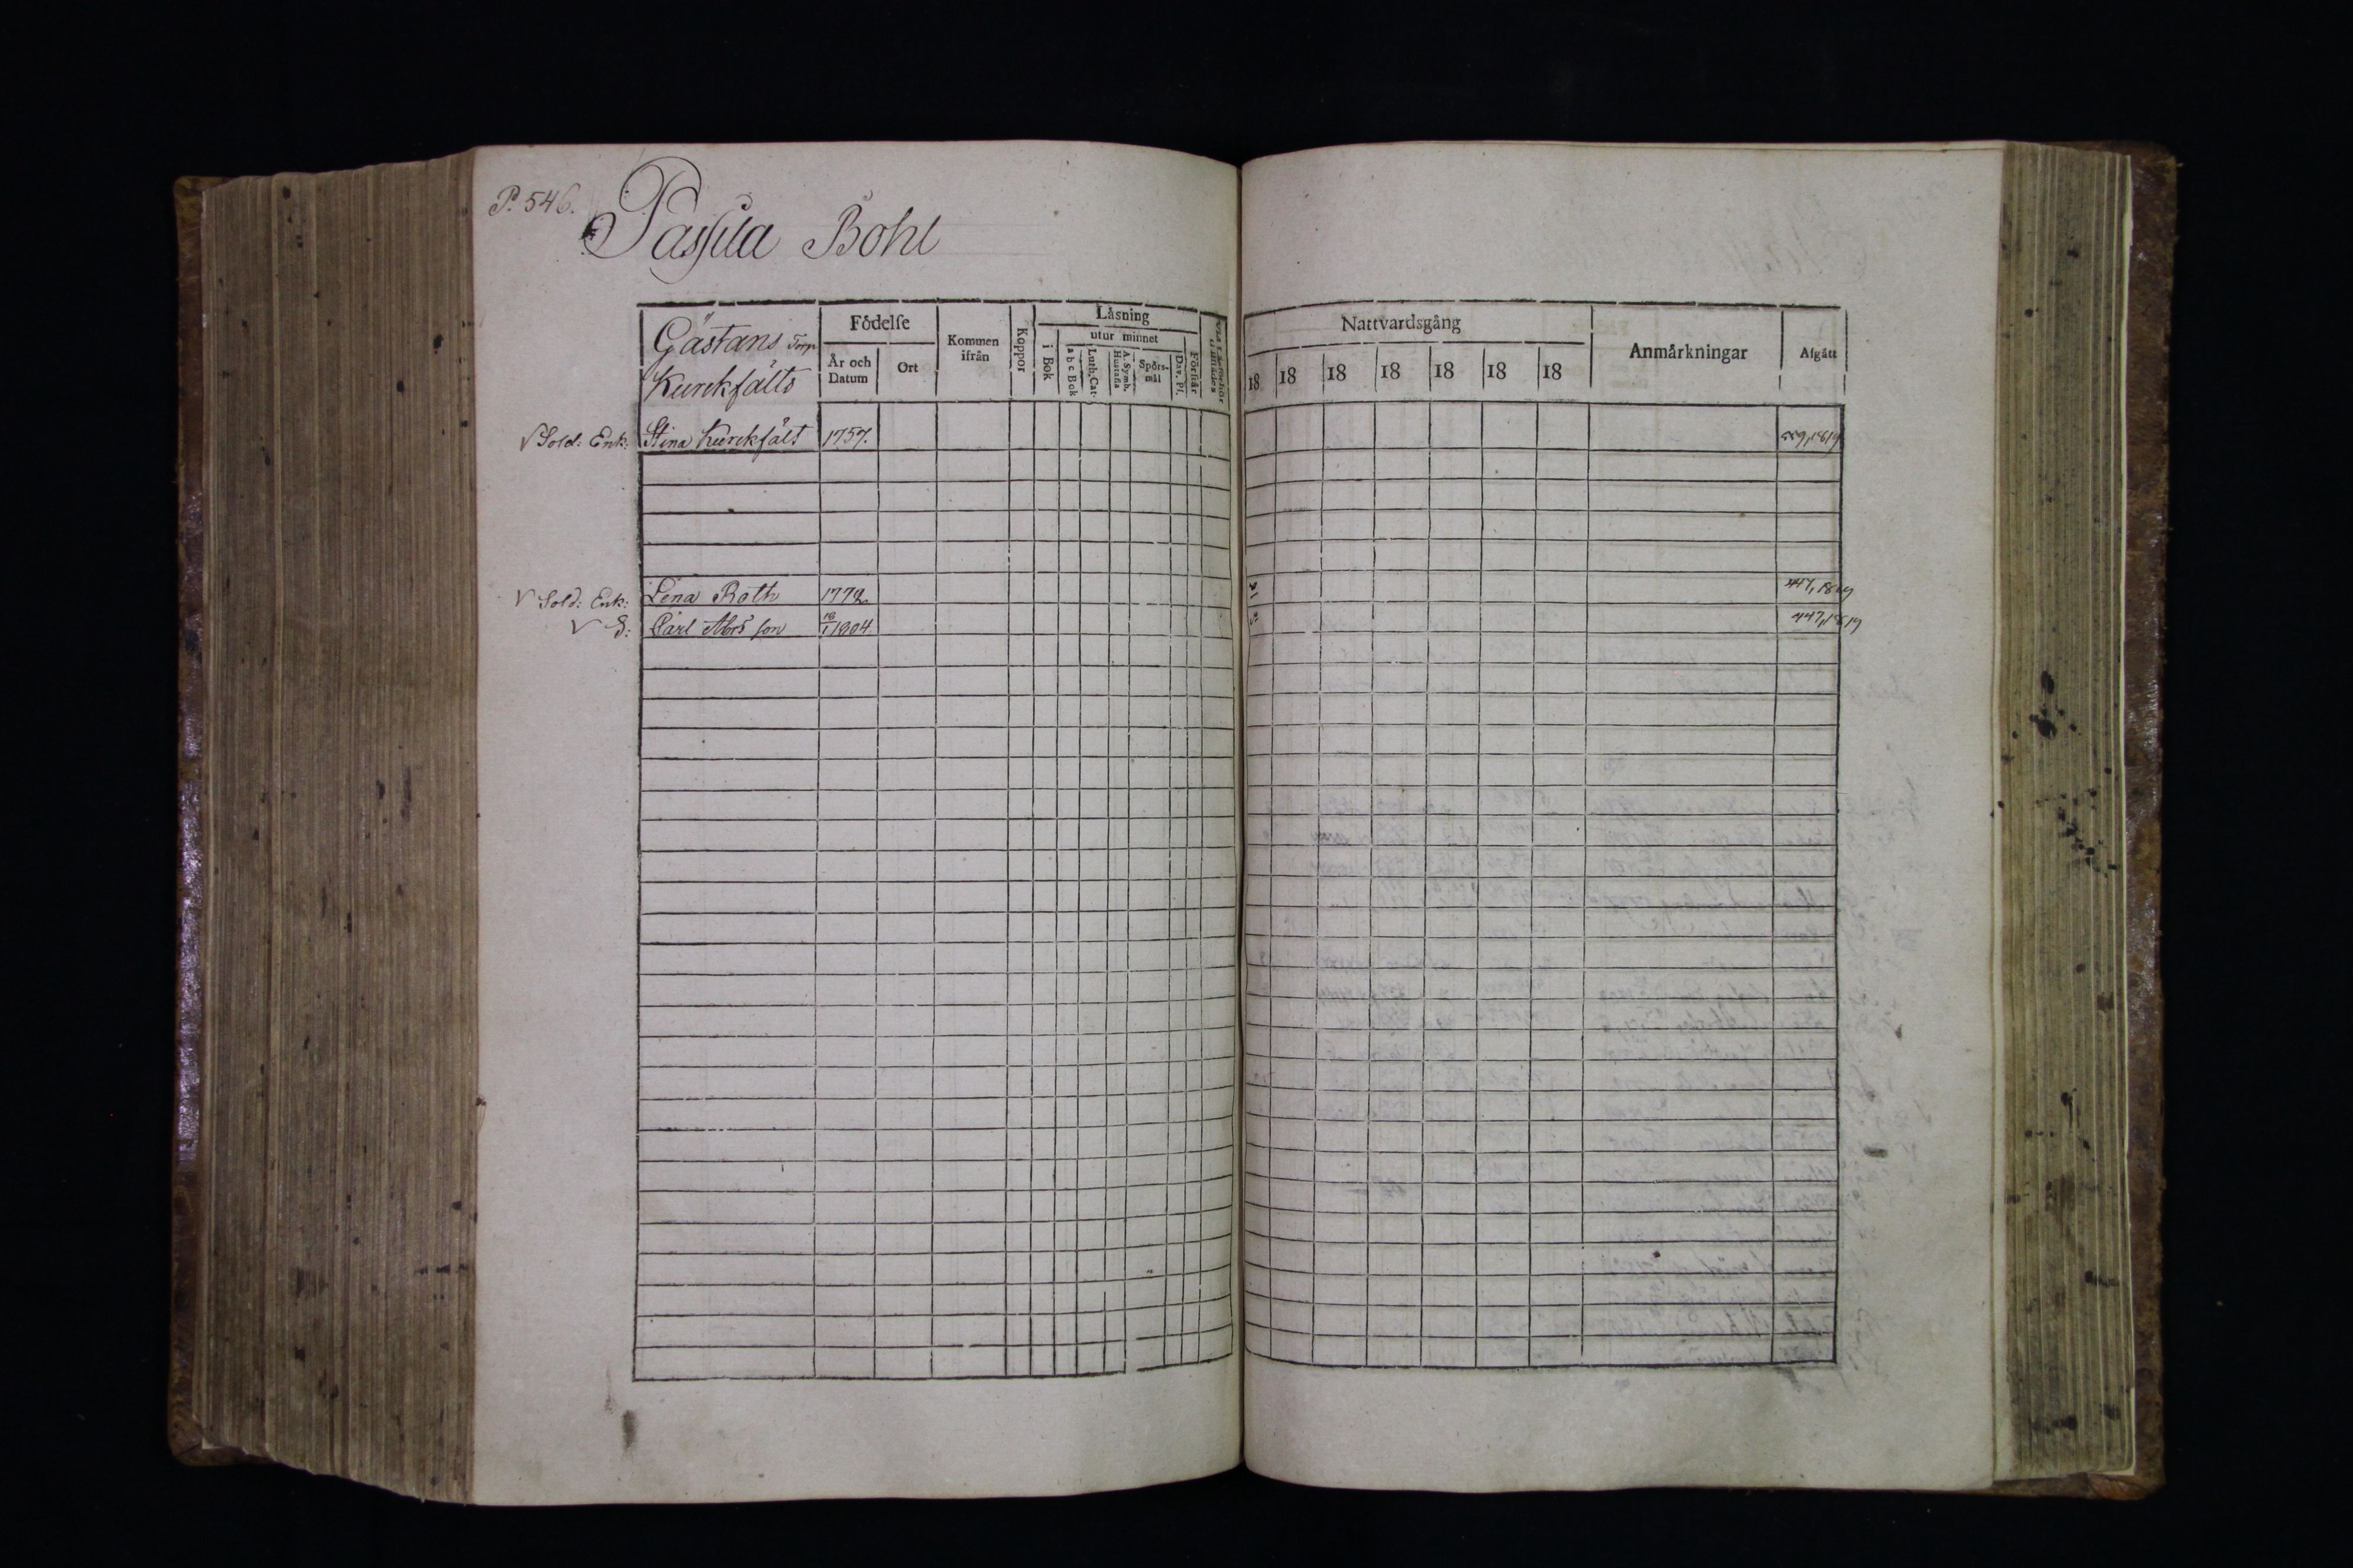 P. 546.
Passila Bohl
Gästans Torp
Kurckfälts
Födelse
År och Datum
Ort
Kommen ifrån
Koppor
Läsning
i Bok
utur minnet
a b c Bok
Luth. Cat.
A. Symb. Hustafla
Spörs-mål
Dav. Ps.
Förstår
Nattvardsgång
18 18 18 18 18 18 18
Anmärkningar
Afgått
√ Sold: Enk: Stina Kurckfält 1757.
√ Sold: Enk: Lena Roth 1772 447, 1819
√ S: Carl Abrs son 18/1 1804. 447, 1819